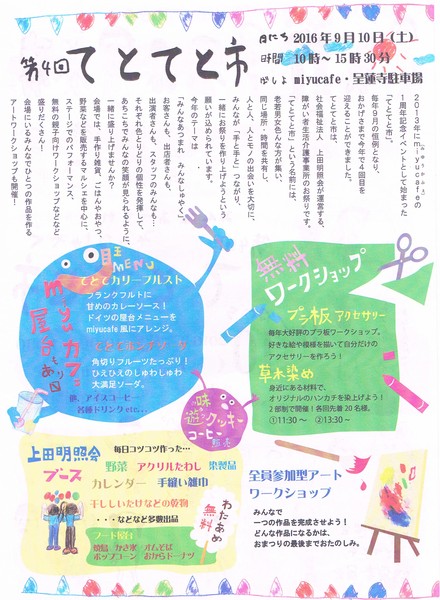 第4回 てとてと市
日にち 2016年9月10日(土)
時間 10時〜15時30分
miyucafe・呈蓮寺駐車場
2013年にmiyucafeの
1周年記念イベントとして始まった
「てとてと市」。
毎年9月の恒例となり、
おかげさまで今年で4回目を
迎えることができました。
社会福祉法人 上田明照会が運営する、
障がい者生活介護事業所のお祭りです。
「てとてと市」という名前には、
老若男女色んな方が集い、
同じ場所・時間を共有し、
人と人、人とモノの出会いを大切に、
みんなが「手と手と」つながり、
一緒にお祭りを作り上げようという
願いが込められています。
今年のテーマは、
「みんなあつまれ みんなしゅやく」。
お客さんも、出店者さんも、
出演者さんも、スタッフのみんなも…
それぞれ色とりどりの個性を発揮して
あちこちでみんなの笑顔が見られるように、
一緒に盛り上げませんか？
会場では、手作り雑貨、ごはんやおやつ、
野菜などを販売するマルシェを中心に、
ステージでのパフォーマンス、
無料の親子向けワークショップなどなど
盛りだくさん！
会場にいるみんなでひとつの作品を作る
アートワークショップも開催！
miyuカフェ
屋台
MENU
てとてカリーブルスト
フランクフルトに
甘めのカレーソース！
ドイツの屋台メニューを
miyucafe風にアレンジ。
てとてポンチソーダ
角切りフルーツたっぷり！
ひえひえのしゅわしゅわ
大満足ソーダ。
他、アイスコーヒー
各種ドリンクetc...
無料
ワークショップ
プラ板アクセサリー
毎年大好評のプラ板ワークショップ。
好きな絵や模様を描いて自分だけの
アクセサリーを作ろう！
草木染め
身近にある材料で、
オリジナルのハンカチを染めよう！
2部制で開催！各回先着20名様。
①11:30〜 ②13:30〜
味遊クッキー
コーヒー
販売
上田明照会
ブース
毎日コツコツ作った…
野菜 アクリルたわし 染製品
カレンダー 手縫い雑巾
干ししいたけなどの乾物
・・・などなど多数出品
フード販売
焼鳥 かき氷 オムそば
ポップコーン おからドーナツ
わたあめ
無料
全員参加型アート
ワークショップ
みんなで
一つの作品を完成させよう！
どんな作品になるかは、
おまつりの最後までおたのしみ。